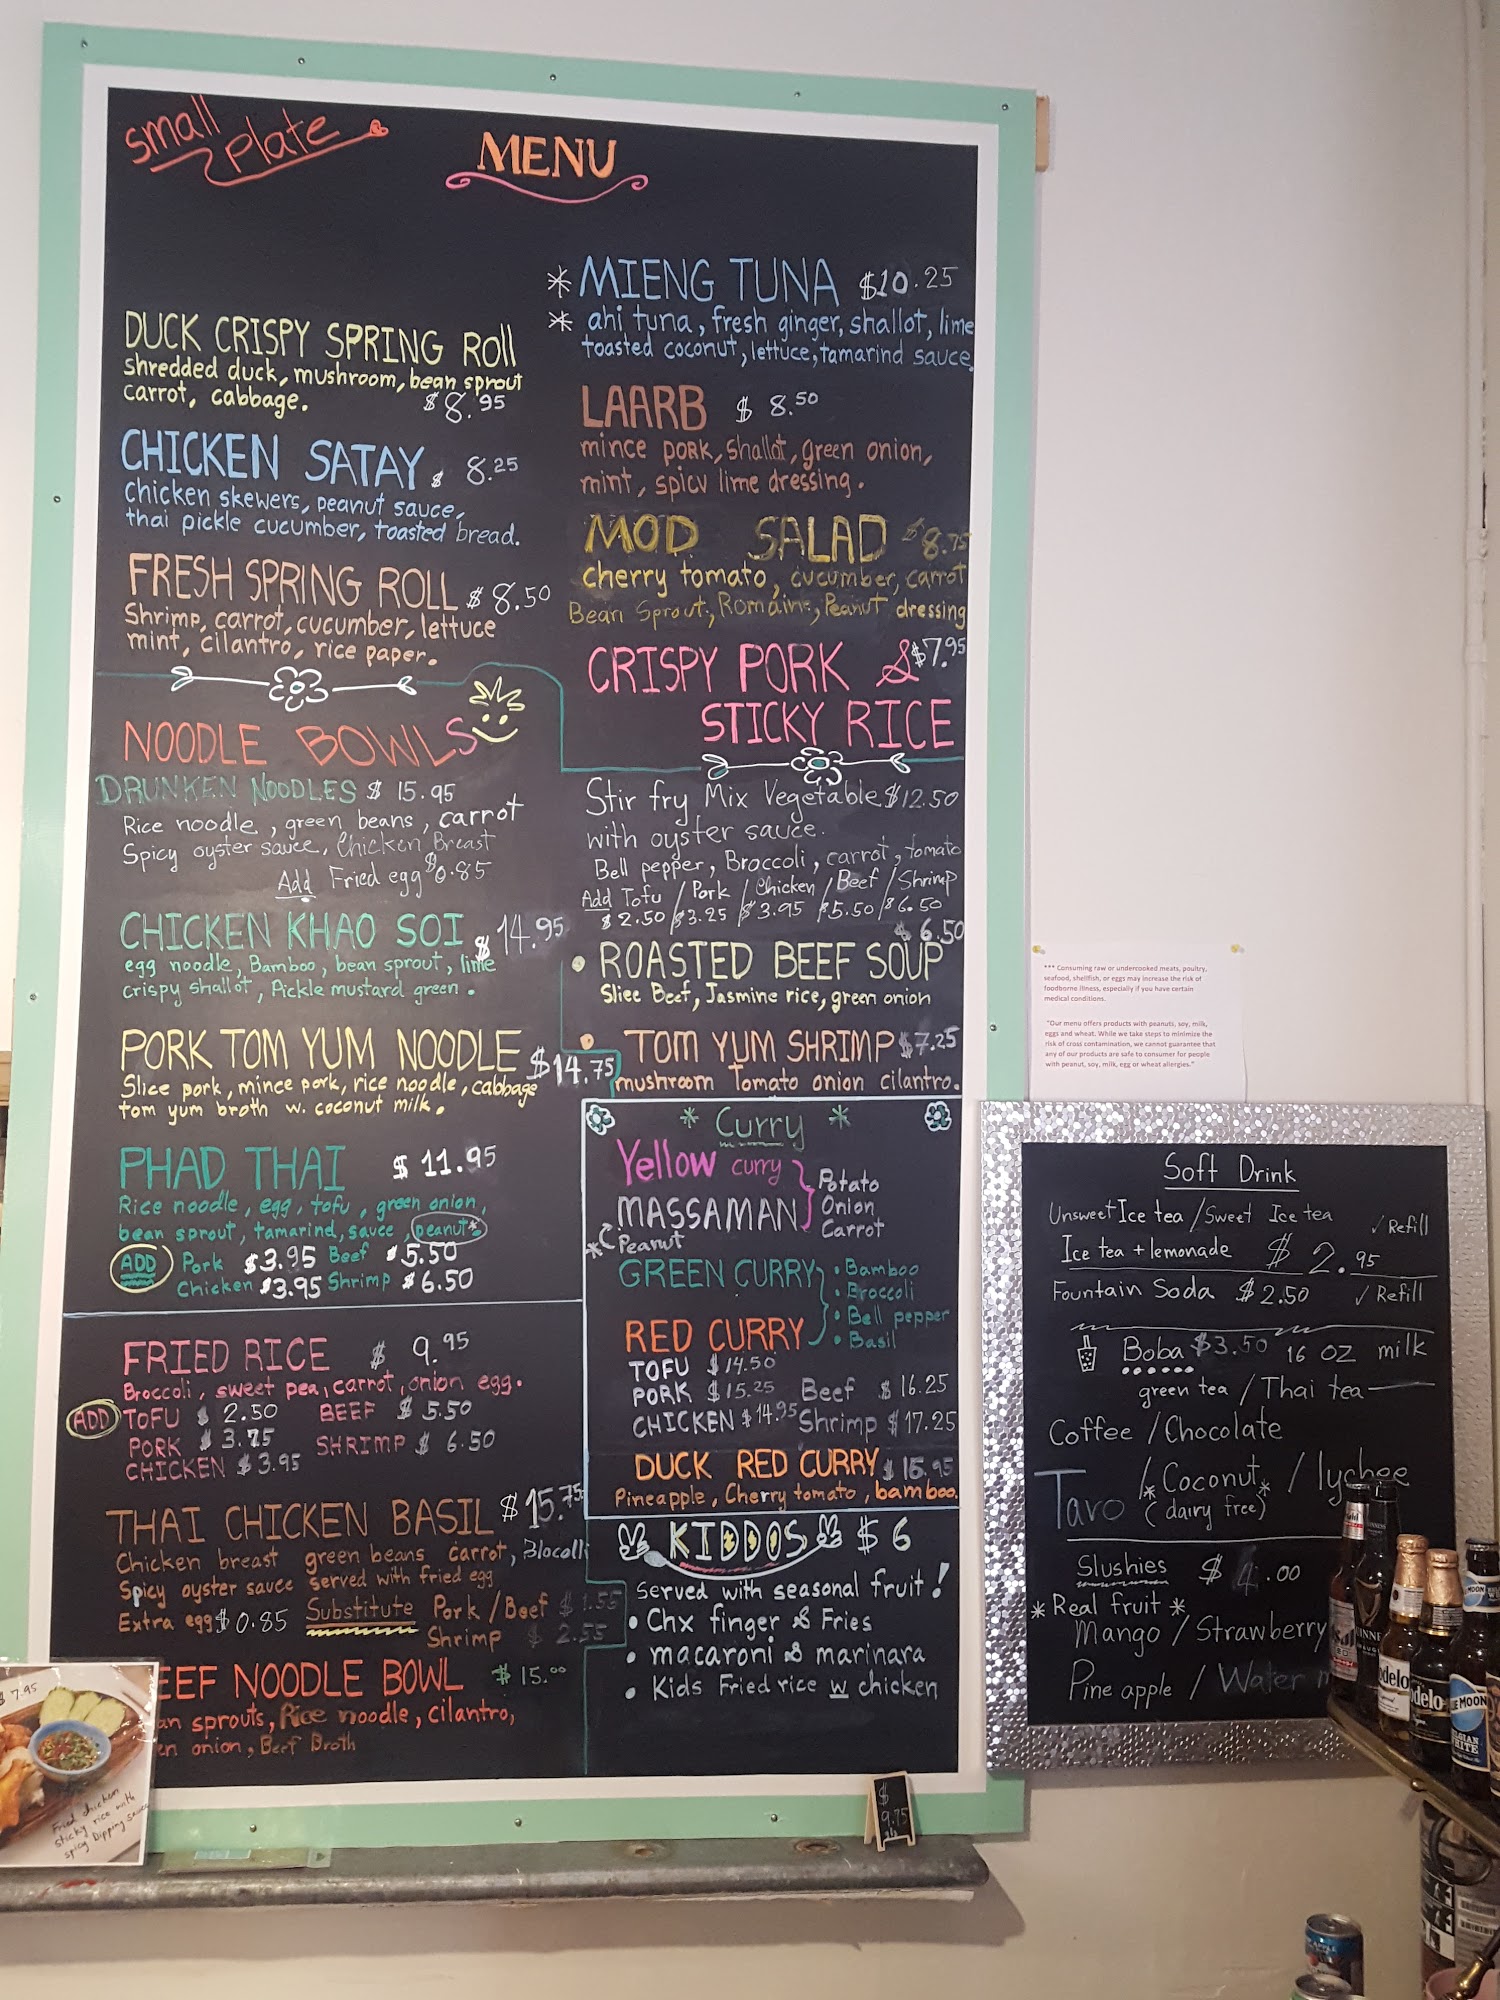 small
plate
MENU
DUCK CRISPY SPRING Roll
shredded duck, mushroom, bean sprout
carrot, cabbage. $8.95
CHICKEN SATAY $ 8.25
Chicken skewers, peanut sauce,
thai pickle cucumber, toasted bread.
FRESH SPRING ROLL $8.50
Shrimp, carrot, cucumber, lettuce
mint, cilantro, rice paper.
* MIENG TUNA $10.25
* ahi tuna, fresh ginger, shallot, lime
toasted coconut, lettuce, tamarind sauce.
LAARB $ 8.50
mince pork, shallot, green onion,
mint, spicy lime dressing.
MOD SALAD $8.75
cherry tomato, cucumber, carrot
Bean Sprout, Romaine, Peanut dressing
CRISPY PORK & $7.95
STICKY RICE
NOODLE BOWLS
DRUNKEN NOODLES $ 15.95
Rice noodle, green beans, carrot
Spicy oyster sauce, Chicken Breast
Add Fried egg $0.85
CHICKEN KHAO SOI $14.95
egg noodle, Bamboo, bean sprout, lime
crispy shallot, Pickle mustard green.
PORK TOM YUM NOODLE $14.75
Slice pork, mince pork, rice noodle, cabbage
tom yum broth w. coconut milk.
PHAD THAI $ 11.95
Rice noodle, egg, tofu, green onion,
bean sprout, tamarind, sauce, peanut*
ADD Pork $3.95 Beef $5.50
Chicken $3.95 Shrimp $6.50
Stir fry Mix Vegetable $12.50
with oyster sauce.
Bell pepper, Broccoli, carrot, tomato
Add Tofu / Pork / Chicken / Beef / Shrimp
$2.50 / $3.25 / $3.95 / $5.50 / $6.50
$6.50
• ROASTED BEEF SOUP
Sliee Beef, Jasmine rice, green onion
• TOM YUM SHRIMP $7.25
mushroom Tomato onion cilantro.
* Curry *
Yellow curry
MASSAMAN
Potato
Onion
Carrot
* Peanut
GREEN CURRY
RED CURRY
• Bamboo
• Broccoli
• Bell pepper
• Basil
TOFU $14.50
PORK $15.25 Beef $16.25
CHICKEN $14.95 Shrimp $17.25
DUCK RED CURRY $16.95
Pineapple, Cherry tomato, bamboo.
FRIED RICE $ 9.95
Broccoli, sweet pea, carrot, onion egg.
ADD TOFU $ 2.50 BEEF $ 5.50
PORK $ 3.75 SHRIMP $ 6.50
CHICKEN $3.95
THAI CHICKEN BASIL $15.75
Chicken breast green beans carrot, Blocolli
Spicy oyster sauce served with fried egg
Extra egg $0.85 Substitute Pork/Beef $1.55
Shrimp $ 2.55
EEF NOODLE BOWL $15.00
an sprouts, Rice noodle, cilantro,
en onion, Beef Broth
KIDDOS $6
Served with seasonal fruit!
• Chx finger & Fries
• macaroni & marinara
• Kids Fried rice w chicken
$ 7.95
Fried chicken
sticky rice with
spicy Dipping sauce
$
9.75
*** Consuming raw or undercooked meats, poultry,
seafood, shellfish, or eggs may increase the risk of
foodborne illness, especially if you have certain
medical conditions.
"Our menu offers products with peanuts, soy, milk,
eggs and wheat. While we take steps to minimize the
risk of cross contamination, we cannot guarantee that
any of our products are safe to consumer for people
with peanut, soy, milk, egg or wheat allergies."
Soft Drink
Unsweet Ice tea / Sweet Ice tea ✓ Refill
Ice tea + lemonade $2.95
Fountain Soda $2.50 ✓ Refill
Boba $3.50 16 OZ milk
green tea / Thai tea
Coffee / Chocolate
Taro / *Coconut* / lychee
(dairy free)
Slushies $4.00
* Real fruit *
Mango / Strawberry
Pineapple / Water m
GUINNESS
odelo
delo
BLUE MOON
BELGIAN
WHITE
MOON